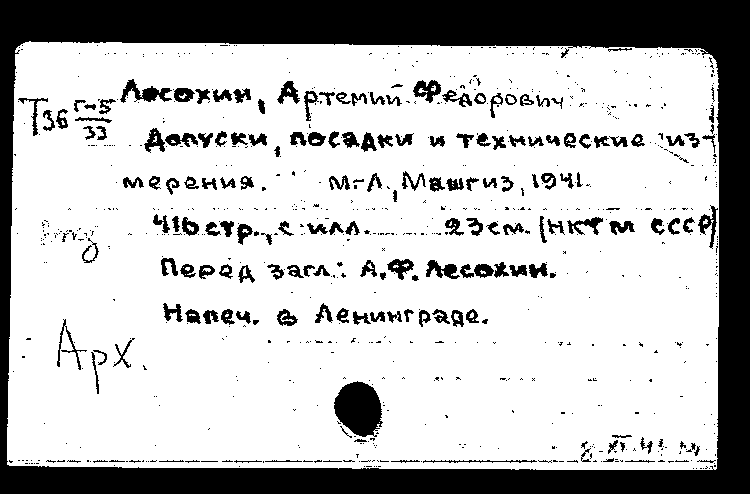 Лесохин, Артемий Федорович
Т36 Г-5
33
Допуски, посадки и технические из-
мерения. М-Л, Машгиз, 1941.
416стр., с илл. 23см. (НКТМ СССР)
Перед загл.: А.Ф. Лесохин.
Напеч. в Ленинграде.
Арх.
8 XI 41